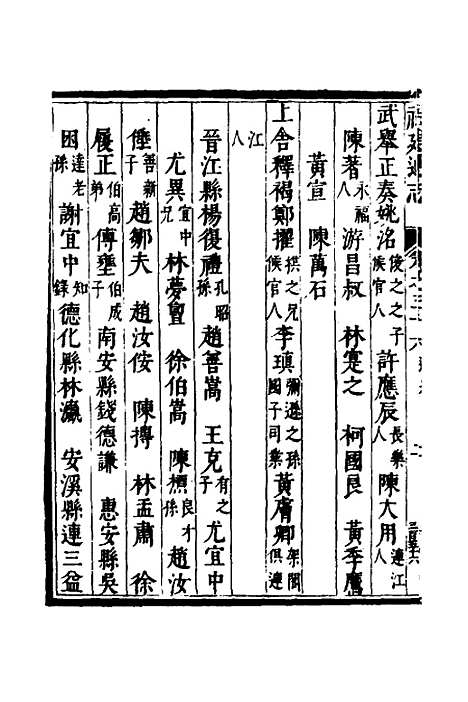 福建通志
武舉正奏姚洺俊之之子候官人 許應辰長樂人 陳大用連江人
陳著永福人 游昌叔 林寔之 柯國良 黃季鷹
黃宣 陳萬石
上舍釋褐鄭擢候官人 李瑱彌遜之孫國子司業 黃膚卿架閣俱連
江人
晉江縣楊復禮孔昭孫 趙善嵩 王克有之子 尤宜中
尤異宜中兄 林夢 徐伯嵩 陳標良才孫 趙汝
倕善新子 趙鄒夫 趙汝侒 陳摶 林孟肅 徐
履正伯高弟 傅壅伯成子 南安縣錢德謙 惠安縣吳
困達老孫 謝宜中知錄 德化縣林瀛 安溪縣連三益